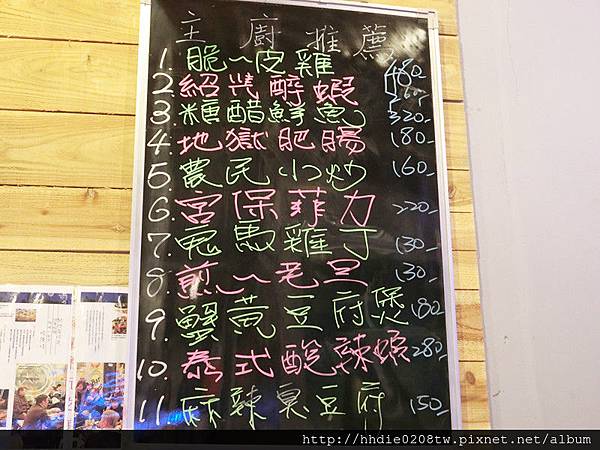 主廚推薦
1. 脆皮雞 480
2. 紹興醉蝦
3. 糖醋鮮魚 320-
4. 地獄肥腸 180-
5. 農民小炒 160-
6. 宮保菲力 220-
7. 宛馬雞丁 130-
8. 煎老豆 130-
9. 蟹黄豆府煲 180
10. 泰式酸辣蝦 280-
11. 麻辣臭豆府 150-
http://hhdie0208tw.pixnet.net/album